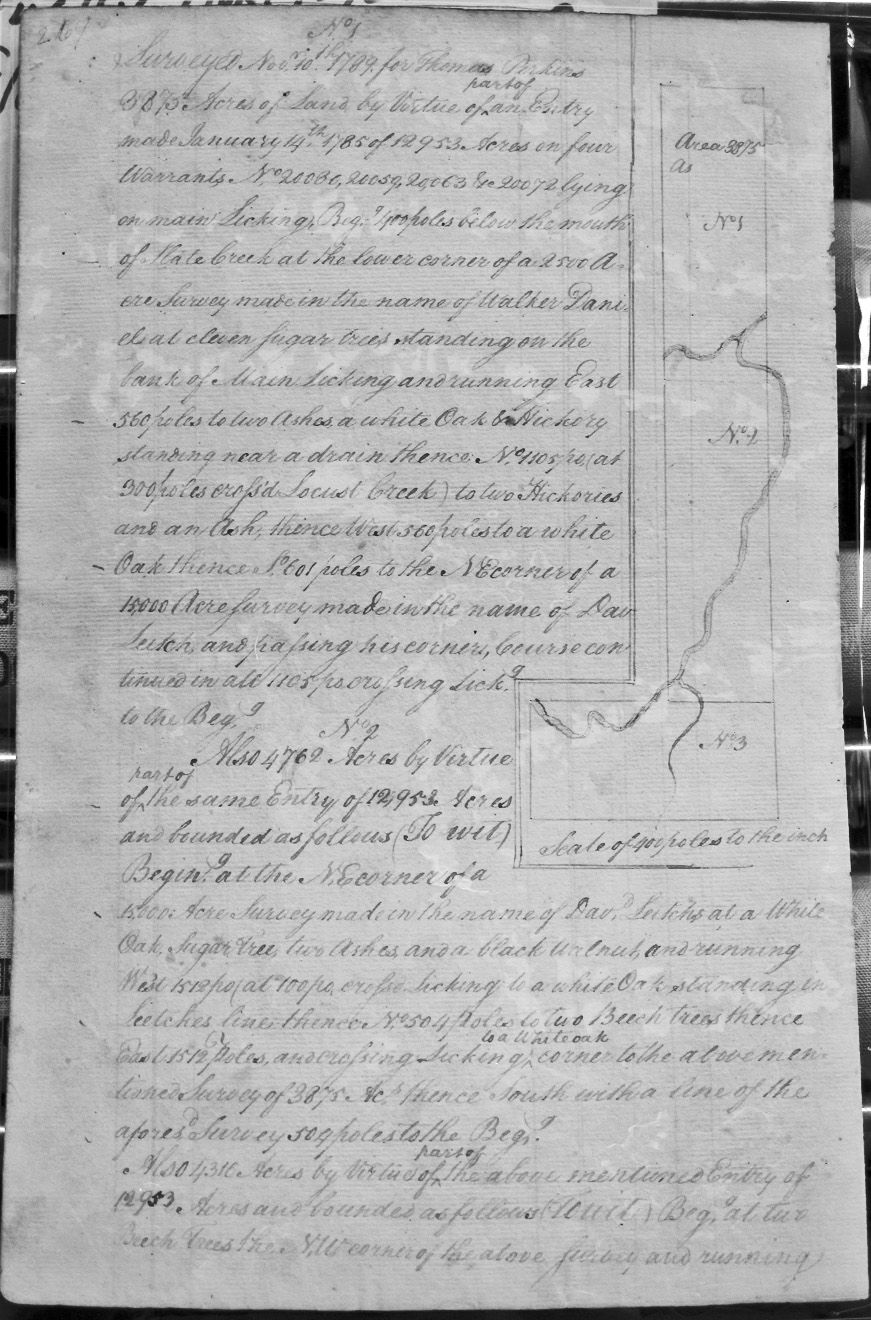 No 1
Surveyed Novr 10th 1789 for Thomas Perkins
part of
3875 Acres of Land by Virtue of ^ an Entry
made January 14th 1785 of 12953 Acres on four
Warrants No 20059, 20063 & 20072 lying
on main Licking, Beg.g 400 poles below the mouth
of Slate Creek at the lower corner of a 2500 A-
cre Survey made in the name of Walker Dani-
els at eleven sugar trees standing on the
bank of Main Licking and running East
560 poles to two Ashes, a white Oak & Hickory
standing near a drain thence No 1105 po. (at
300 poles cross'd Locust Creek) to two Hickories
and an Ash, thence West 560 poles to a white
Oak thence So 601 poles to the NE corner of a
15,000 Acre Survey made in the name of Dav
Leitch, and passing his corner, Course con
tinued in all 1105 po. crossing Lick.g
to the Beg.g
No 2
Also 4762 Acres by Virtue
part of
of ^ the same Entry of 12,953 Acres
and bounded as follows (To wit)
Begin.g at the N.E corner of a
15,000 Acre Survey made in the name of Dav.d Leitch's at a White
Oak, Sugar Tree, two Ashes, and a black walnut, and running
West 1512 po. (at 100 po. cross'd Licking to a white Oak standing in
Leitches line thence No 504 poles to two Beech trees thence
to a White oak
East 1512 poles, and crossing Licking ^ corner to the above men-
tioned Survey of 3875 Acs thence South with a line of the
afores.d Survey 504 poles to the Beg.g
part of
Also 4316 Acres by Virtue of ^ the above mentioned Entry of
12953 Acres and bounded as follows (to wit) Beg.g at two
Beech Trees the N.W corner of the above survey and running
Area 3875
As
No 1
No 2
No 3
Scale of 400 poles to the inch